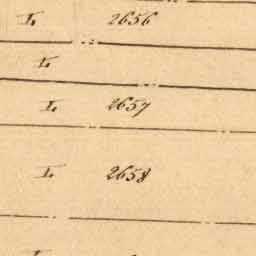 I. 2656
I.
I. 2657
I. 2658
I.